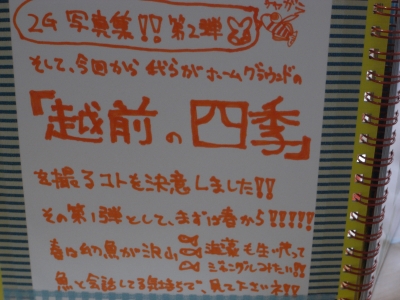 2G 写真集!! 第2弾
そして、今回から 我らがホームグラウンドの
『越前の四季』
を撮るコトを決意しました!!
その第1弾として、まずは春から!!!!!
春は幼魚が沢山 海藻も生い茂って
魚と会話してる気持ちで、見て下さいネ!!